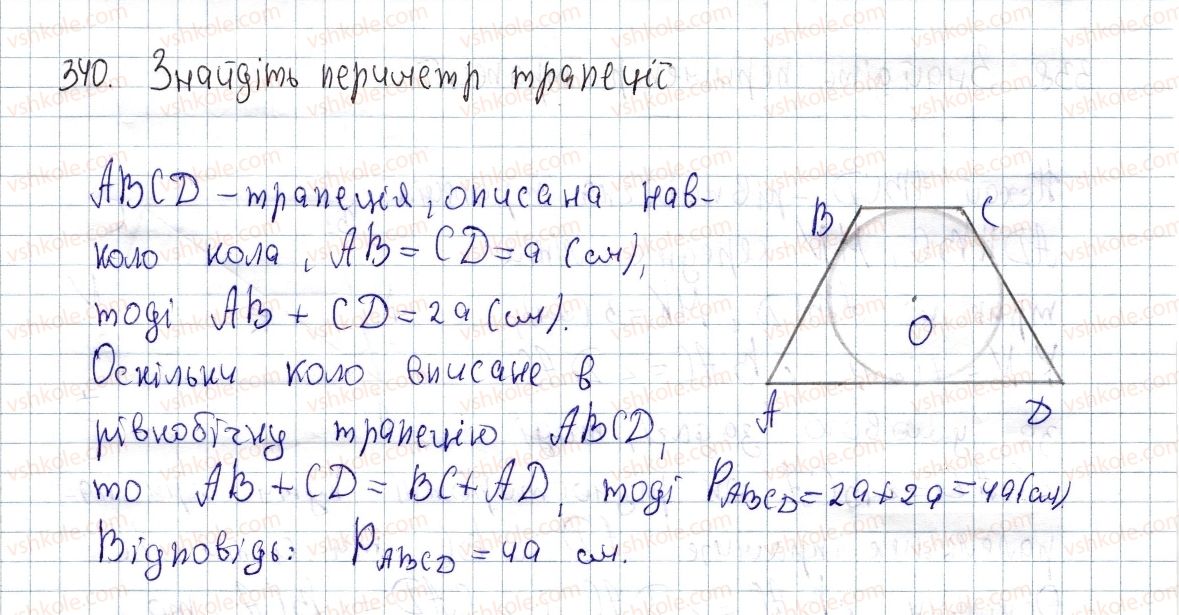 340. Знайдіть периметр трапеції
ABCD – трапеція, описана нав-
коло кола, AB = CD = a (см),
тоді AB + CD = 2a (см).
Оскільки коло вписане в
рівнобічну трапецію ABCD,
то AB + CD = BC + AD, тоді P_ABCD = 2a + 2a = 4a (см)
Відповідь: P_ABCD = 4a см.
B C
O
A D
vshkole.com